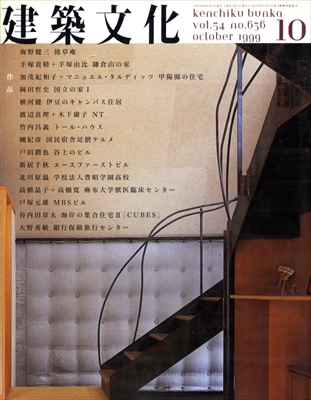 建築文化
kenchiku bunka
vol.54 no.636
october 1999
10
作品
海野健三 綾草庵
手塚貴晴+手塚由比 鎌倉山の家
加茂紀和子+マニュエル・タルディッツ 甲陽園の住宅
岡田哲史 国立の家 I
横河健 伊豆のキャンバス住居
渡辺真理+木下庸子 NT
竹内昌義 トール・ハウス
團紀彦 国民宿舎足摺テルメ
戸田潤也 谷上のビル
新居千秋 エースファーストビル
北川原温 学校法人豊昭学園高校
高橋晶子+高橋寛 麻布大学獣医臨床センター
戸塚元雄 MBSビル
谷内田章夫 海岸の集合住宅II [CUBES]
大野秀敏 銀行保険旅行センター